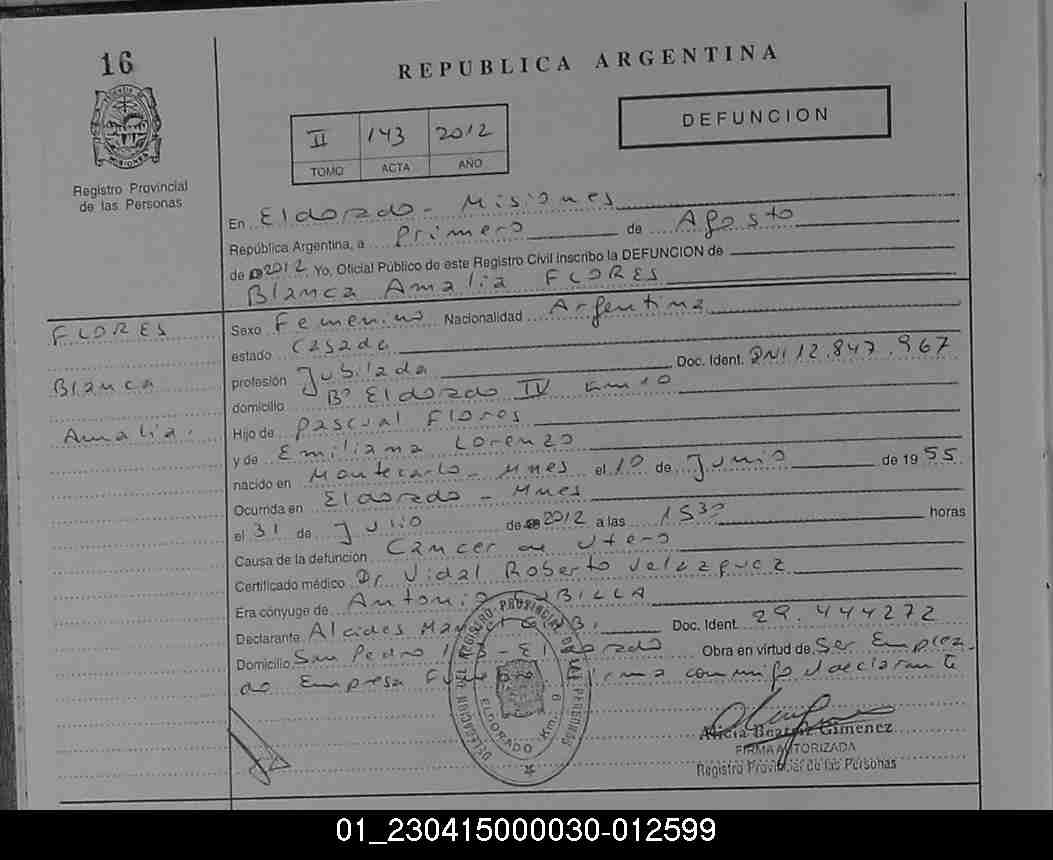 16
REPUBLICA ARGENTINA
Registro Provincial
de las Personas
II 143 2012
TOMO ACTA AÑO
DEFUNCION
En Eldorado - Misiones
República Argentina, a Primero de Agosto
de 2012. Yo, Oficial Público de este Registro Civil inscribo la DEFUNCION de
Blanca Amalia FLORES
FLORES
Blanca
Amalia.
Sexo Femenino Nacionalidad Argentina
estado Casada
profesión Jubilada Doc. Ident. DNI 12.847.967
domicilio Bº Eldorado IV km 10
Hijo de Pascual Flores
y de Emiliana Lorenzo
nacido en Montecarlo - Mnes el 10 de Junio de 1955
Ocurrida en Eldorado - Mnes
el 31 de Julio de 2012 a las 1530 horas
Causa de la defunción Cáncer de Utero
Certificado médico Dr Vidal Roberto Velazquez
Era cónyuge de Antonio
Declarante Alcides Doc. Ident. 29.444272
Domicilio San Pedro - Eldorado Obra en virtud de Ser Emplea-
do Empresa firma conmigo declarante
DELEGACION DEL REGISTRO PROVINCIAL DE LAS PERSONAS
ELDORADO Km.
Alicia Beatriz Gimenez
FIRMA AUTORIZADA
Registro Provincial de las Personas
01_230415000030-012599